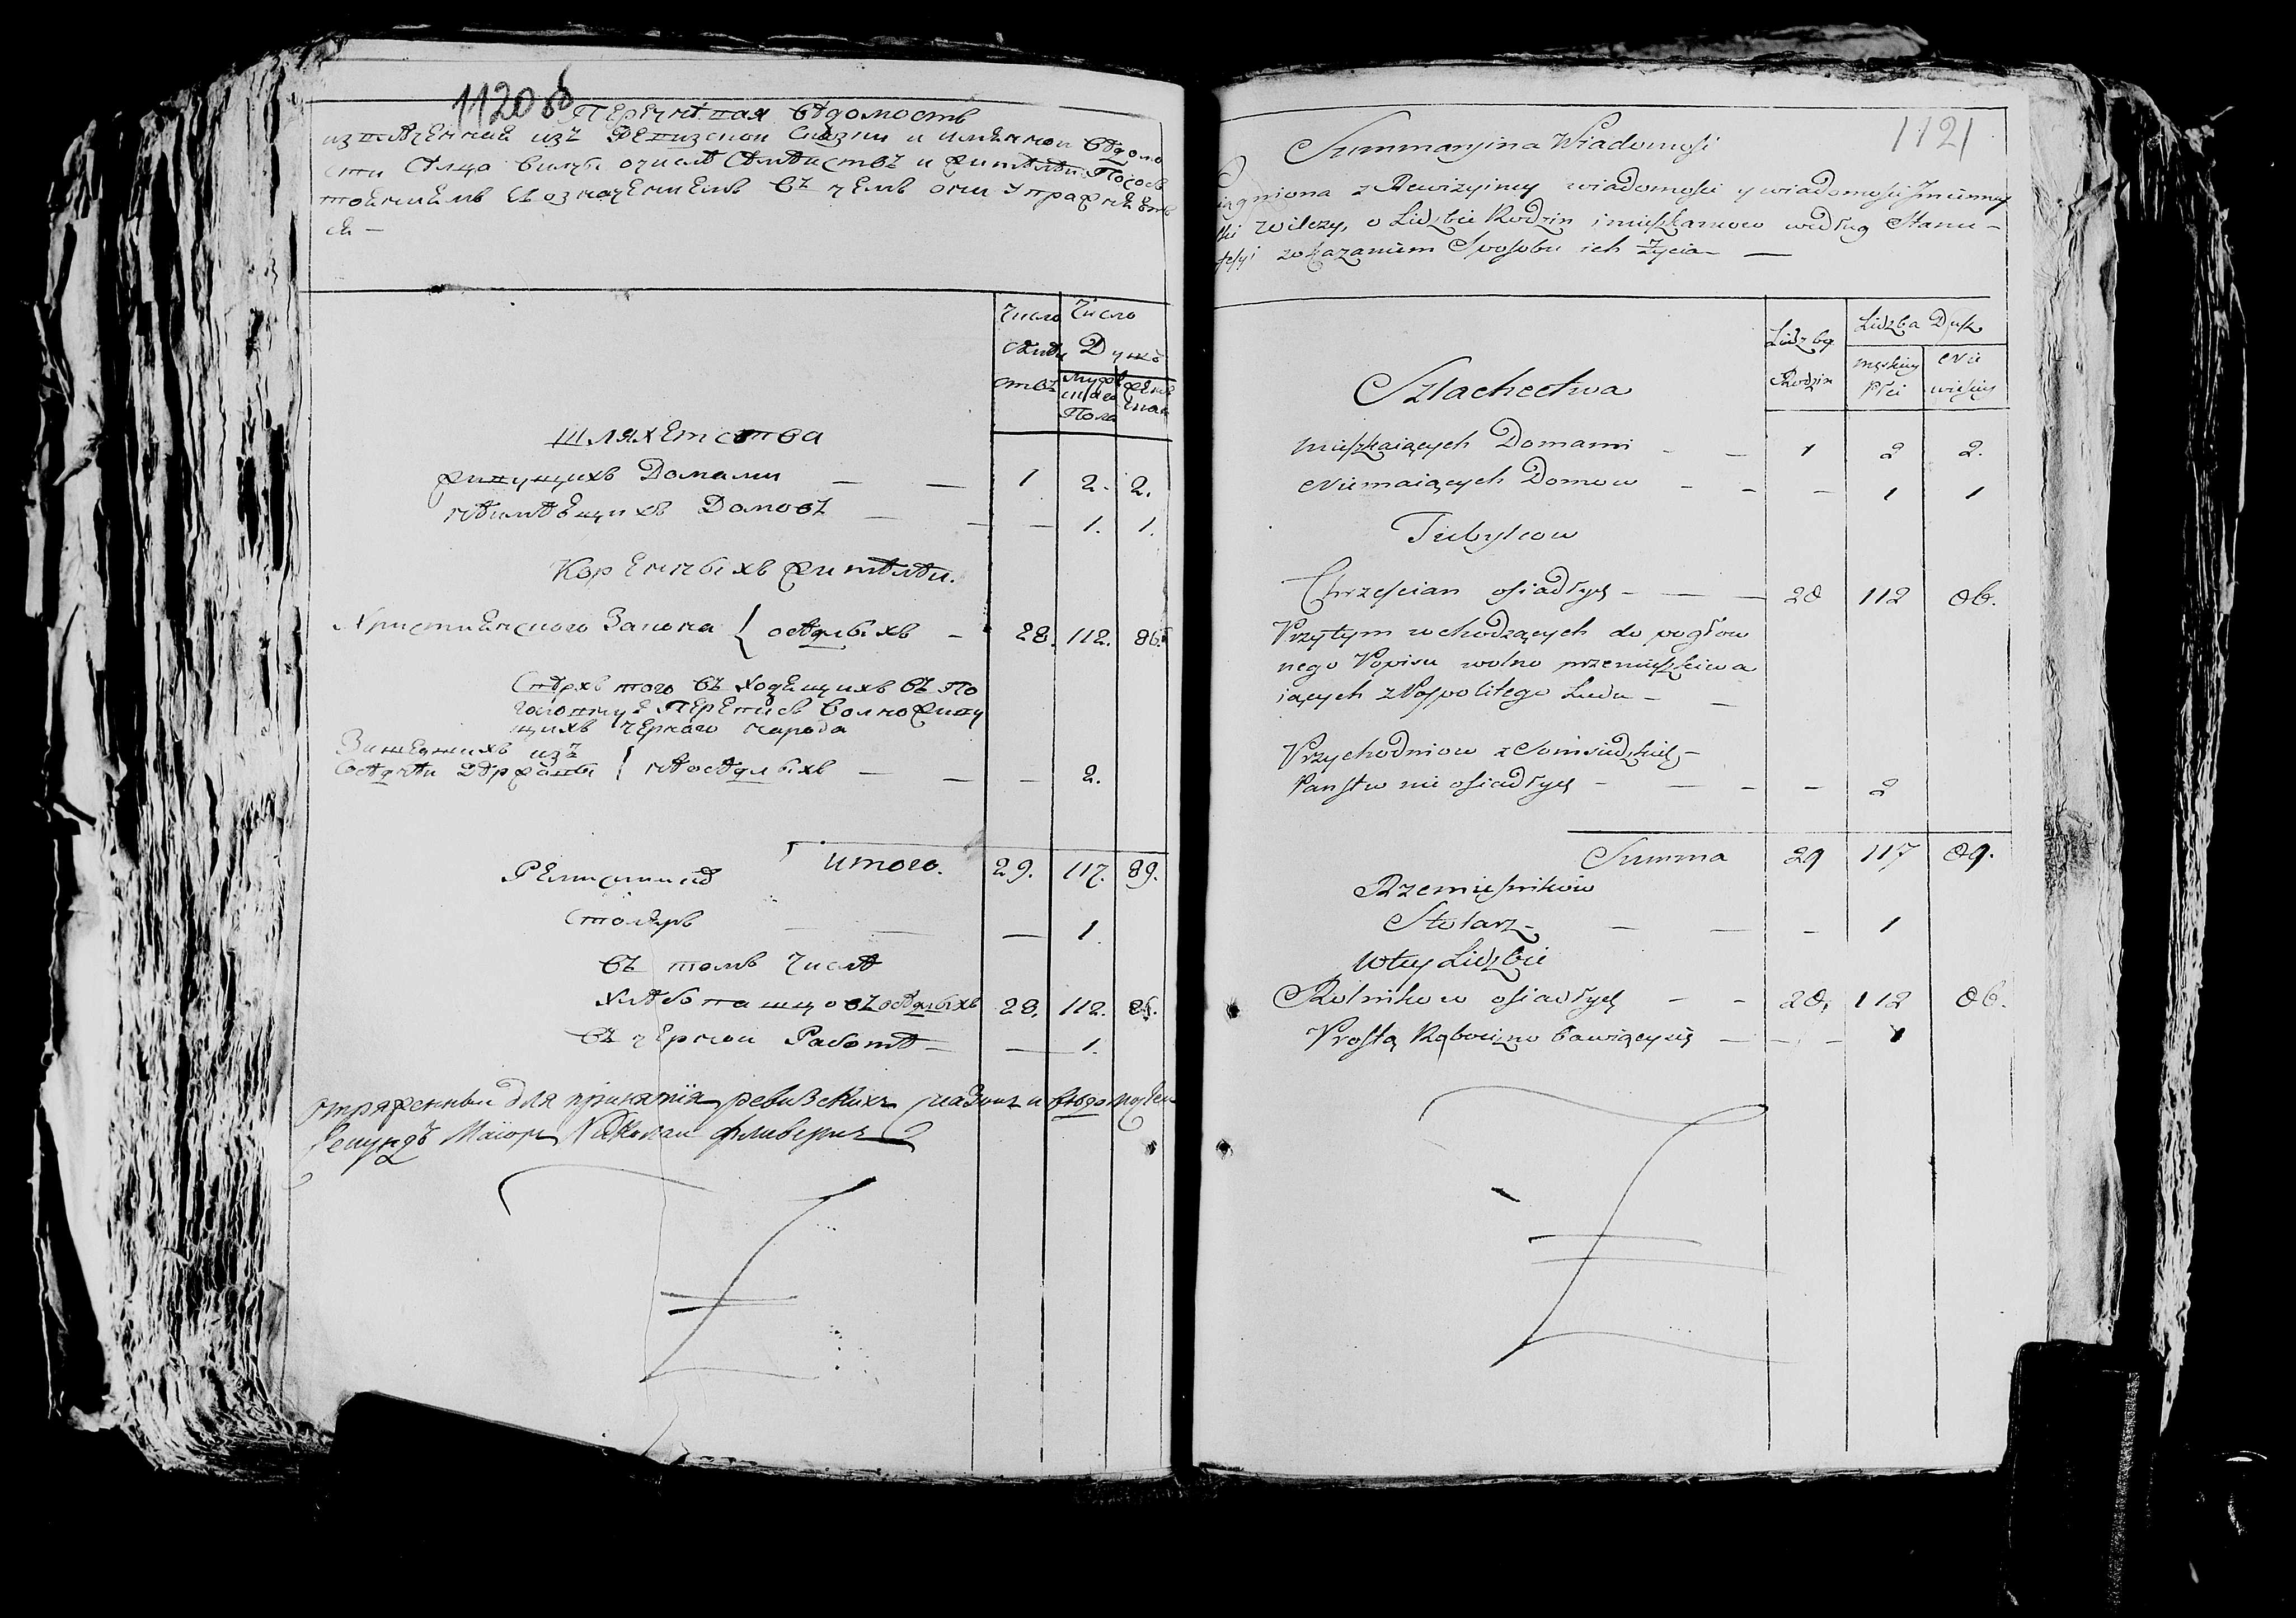 1120 об
Перечневая вѣдомость
извлеченная изъ Ревизской сказки и имянной вѣдомо
сти Селца Вилчи о числѣ Сѣмѣйствъ и жителѣй По со
стоянiямъ съ означенiемъ въ чемъ они упражняют
ся —
Число Число
сѣмѣй Душъ
ствъ мужескаго Пола женскаго
Шляхетства
живущихъ Домами — — 1 2. 2.
неимѣющихъ Домовъ — — — 1. 1.
Коренныхъ жителѣй.
Християнского Закона { осѣдлыхъ — 28. 112. 86.
Сверхъ того въ ходящихъ въ По
головную Перепись волно живу
щихъ черного народа
Зашедшихъ изъ
Сосѣдней Державы { неосѣдлыхъ — — — 2.
итого. 29. 117. 89.
Ремесники
Столяръ — — — 1.
Въ томъ Числѣ
Хлѣбопашцовъ осѣдлыхъ 28. 112. 86.
Въ черной Работѣ — — 1.
отряженный для принятiя ревизскихъ сказокъ и
Секундъ Маiоръ Николай
1121
Summaryina Wiadomość
iągniona z Rewizyiney wiadomości y wiadomości Imienney
Wilczy, o Liczbie Rodzin i mieszkancow według Stanu —
z okazaniem Sposobu ich życia — —
Liczba Liczba Dusz
Rodzin męskiey Płci Nie wieskiey
Szlachectwa
Mieszkaiących Domami — — 1 2 2.
Niemaiących Domow — — — 1 1
Tubylcow
Chrzescian osiadłych — — — 28 112 86.
Przytym wchodzących do pogłow
nego Popisu wolno przemieszkiwa
iących z Pospolitego Ludu — —
Przychodniow z Somsiedzkich
Panstw nie osiadłych — — — — 2
Summa 29 117 89.
Rzemieslnikow
Stolarz — — — 1
W tey Liczbie
Rolnikow osiadłych — — 28, 112 86.
Prostą Robocizno bawiących się — — — 1